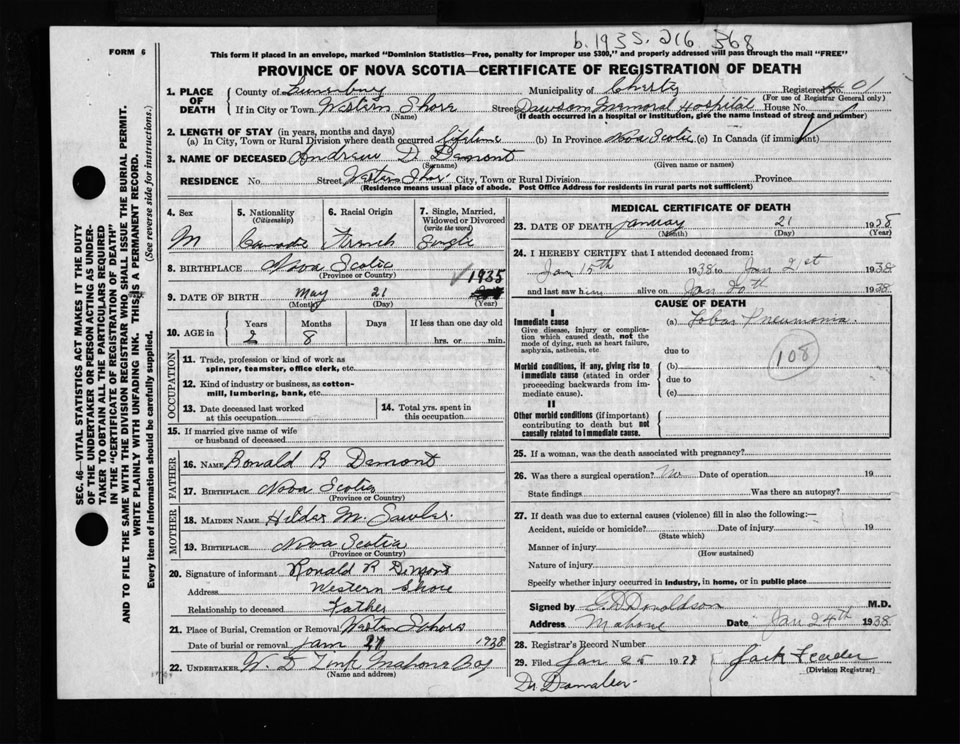 b. 1935. 216. 368
FORM 6
This form if placed in an envelope, marked "Dominion Statistics—Free, penalty for improper use $300," and properly addressed will pass through the mail "FREE"
PROVINCE OF NOVA SCOTIA—CERTIFICATE OF REGISTRATION OF DEATH
1. PLACE OF DEATH
County of Lunenburg Municipality of Registered No. 01
(For use of Registrar General only)
If in City or Town Western Shore Street Dawson Memoral Hospital House No.
(Name) (If death occurred in a hospital or institution, give the name instead of street and number)
2. LENGTH OF STAY (in years, months and days)
(a) In City, Town or Rural Division where death occurred lifetime (b) In Province Nova Scotia (c) In Canada (if immigrant)
3. NAME OF DECEASED Andrew D. Demont
(Surname) (Given name or names)
RESIDENCE No. Street Western Shor City, Town or Rural Division Province
(Residence means usual place of abode. Post Office Address for residents in rural parts not sufficient)
4. Sex
M
5. Nationality
(Citizenship)
6. Racial Origin
French
7. Single, Married, Widowed or Divorced
(write the word)
Single
8. BIRTHPLACE Nova Scotia
(Province or Country)
✓ 1935
9. DATE OF BIRTH May 21
(Month) (Day) (Year)
10. AGE in
Years Months Days If less than one day old
2 8 hrs. or min.
OCCUPATION
11. Trade, profession or kind of work as spinner, teamster, office clerk, etc.
12. Kind of industry or business, as cotton-mill, lumbering, bank, etc.
13. Date deceased last worked at this occupation
14. Total yrs. spent in this occupation
15. If married give name of wife or husband of deceased
FATHER
16. NAME Ronald R Demont
17. BIRTHPLACE Nova Scotia
(Province or Country)
MOTHER
18. MAIDEN NAME Hilda M. Sawler
19. BIRTHPLACE Nova Scotia
(Province or Country)
20. Signature of informant Ronald R DeMont
Address Western Shore
Relationship to deceased Father
21. Place of Burial, Cremation or Removal Western Shore
Date of burial or removal Jan 1938
22. UNDERTAKER W. D Link Mahone Bay
(Name and address)
MEDICAL CERTIFICATE OF DEATH
23. DATE OF DEATH January 21 1938
(Month) (Day) (Year)
24. I HEREBY CERTIFY that I attended deceased from:
Jan 15th 1938 to Jan 21st 1938
and last saw him alive on Jan 20th 1938
CAUSE OF DEATH
I
Immediate cause
Give disease, injury or complication which caused death, not the mode of dying, such as heart failure, asphyxia, asthenia, etc
(a) Lobar Pneumonia
due to
108
Morbid conditions, if any, giving rise to immediate cause (stated in order proceeding backwards from immediate cause).
(b)
due to
(c)
II
Other morbid conditions (if important) contributing to death but not causally related to immediate cause.
25. If a woman, was the death associated with pregnancy?
26. Was there a surgical operation? No Date of operation 19
State findings Was there an autopsy?
27. If death was due to external causes (violence) fill in also the following:—
Accident, suicide or homicide? Date of injury 19
(State which)
Manner of injury
(How sustained)
Nature of injury
Specify whether injury occurred in industry, in home, or in public place
Signed by G. D Donaldson M.D.
Address Mahone Date Jan 24th 1938
28. Registrar's Record Number
29. Filed Jan 25
(Division Registrar)
SEC. 46—VITAL STATISTICS ACT MAKES IT THE DUTY
OF THE UNDERTAKER OR PERSON ACTING AS UNDER-
TAKER TO OBTAIN ALL THE PARTICULARS REQUIRED
IN THE "CERTIFICATE OF REGISTRATION OF DEATH"
AND TO FILE THE SAME WITH THE DIVISION REGISTRAR WHO SHALL ISSUE THE BURIAL PERMIT.
WRITE PLAINLY WITH UNFADING INK. THIS IS A PERMANENT RECORD.
Every item of information should be carefully supplied. (See reverse side for instructions.)